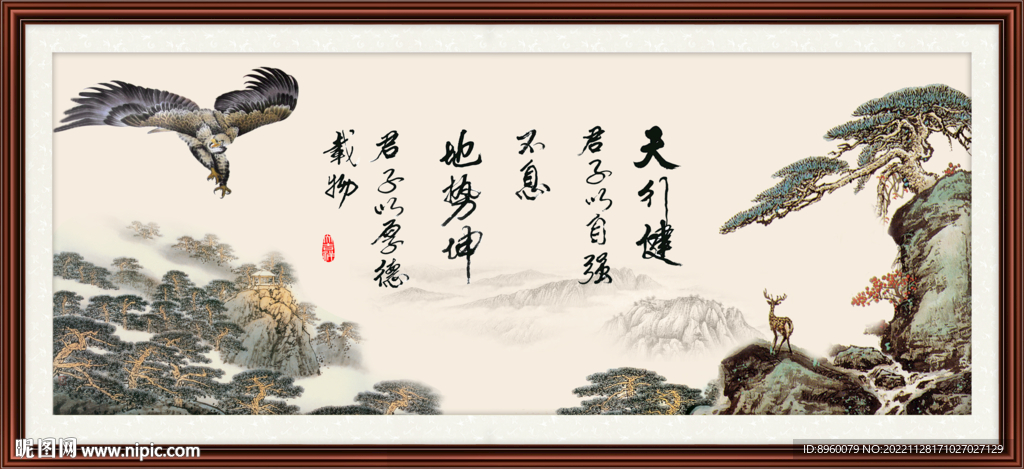 天行健
君子以自强
不息
地势坤
君子以厚德
载物
昵图网 www.nipic.com
ID:8960079 NO:20221128171027027129